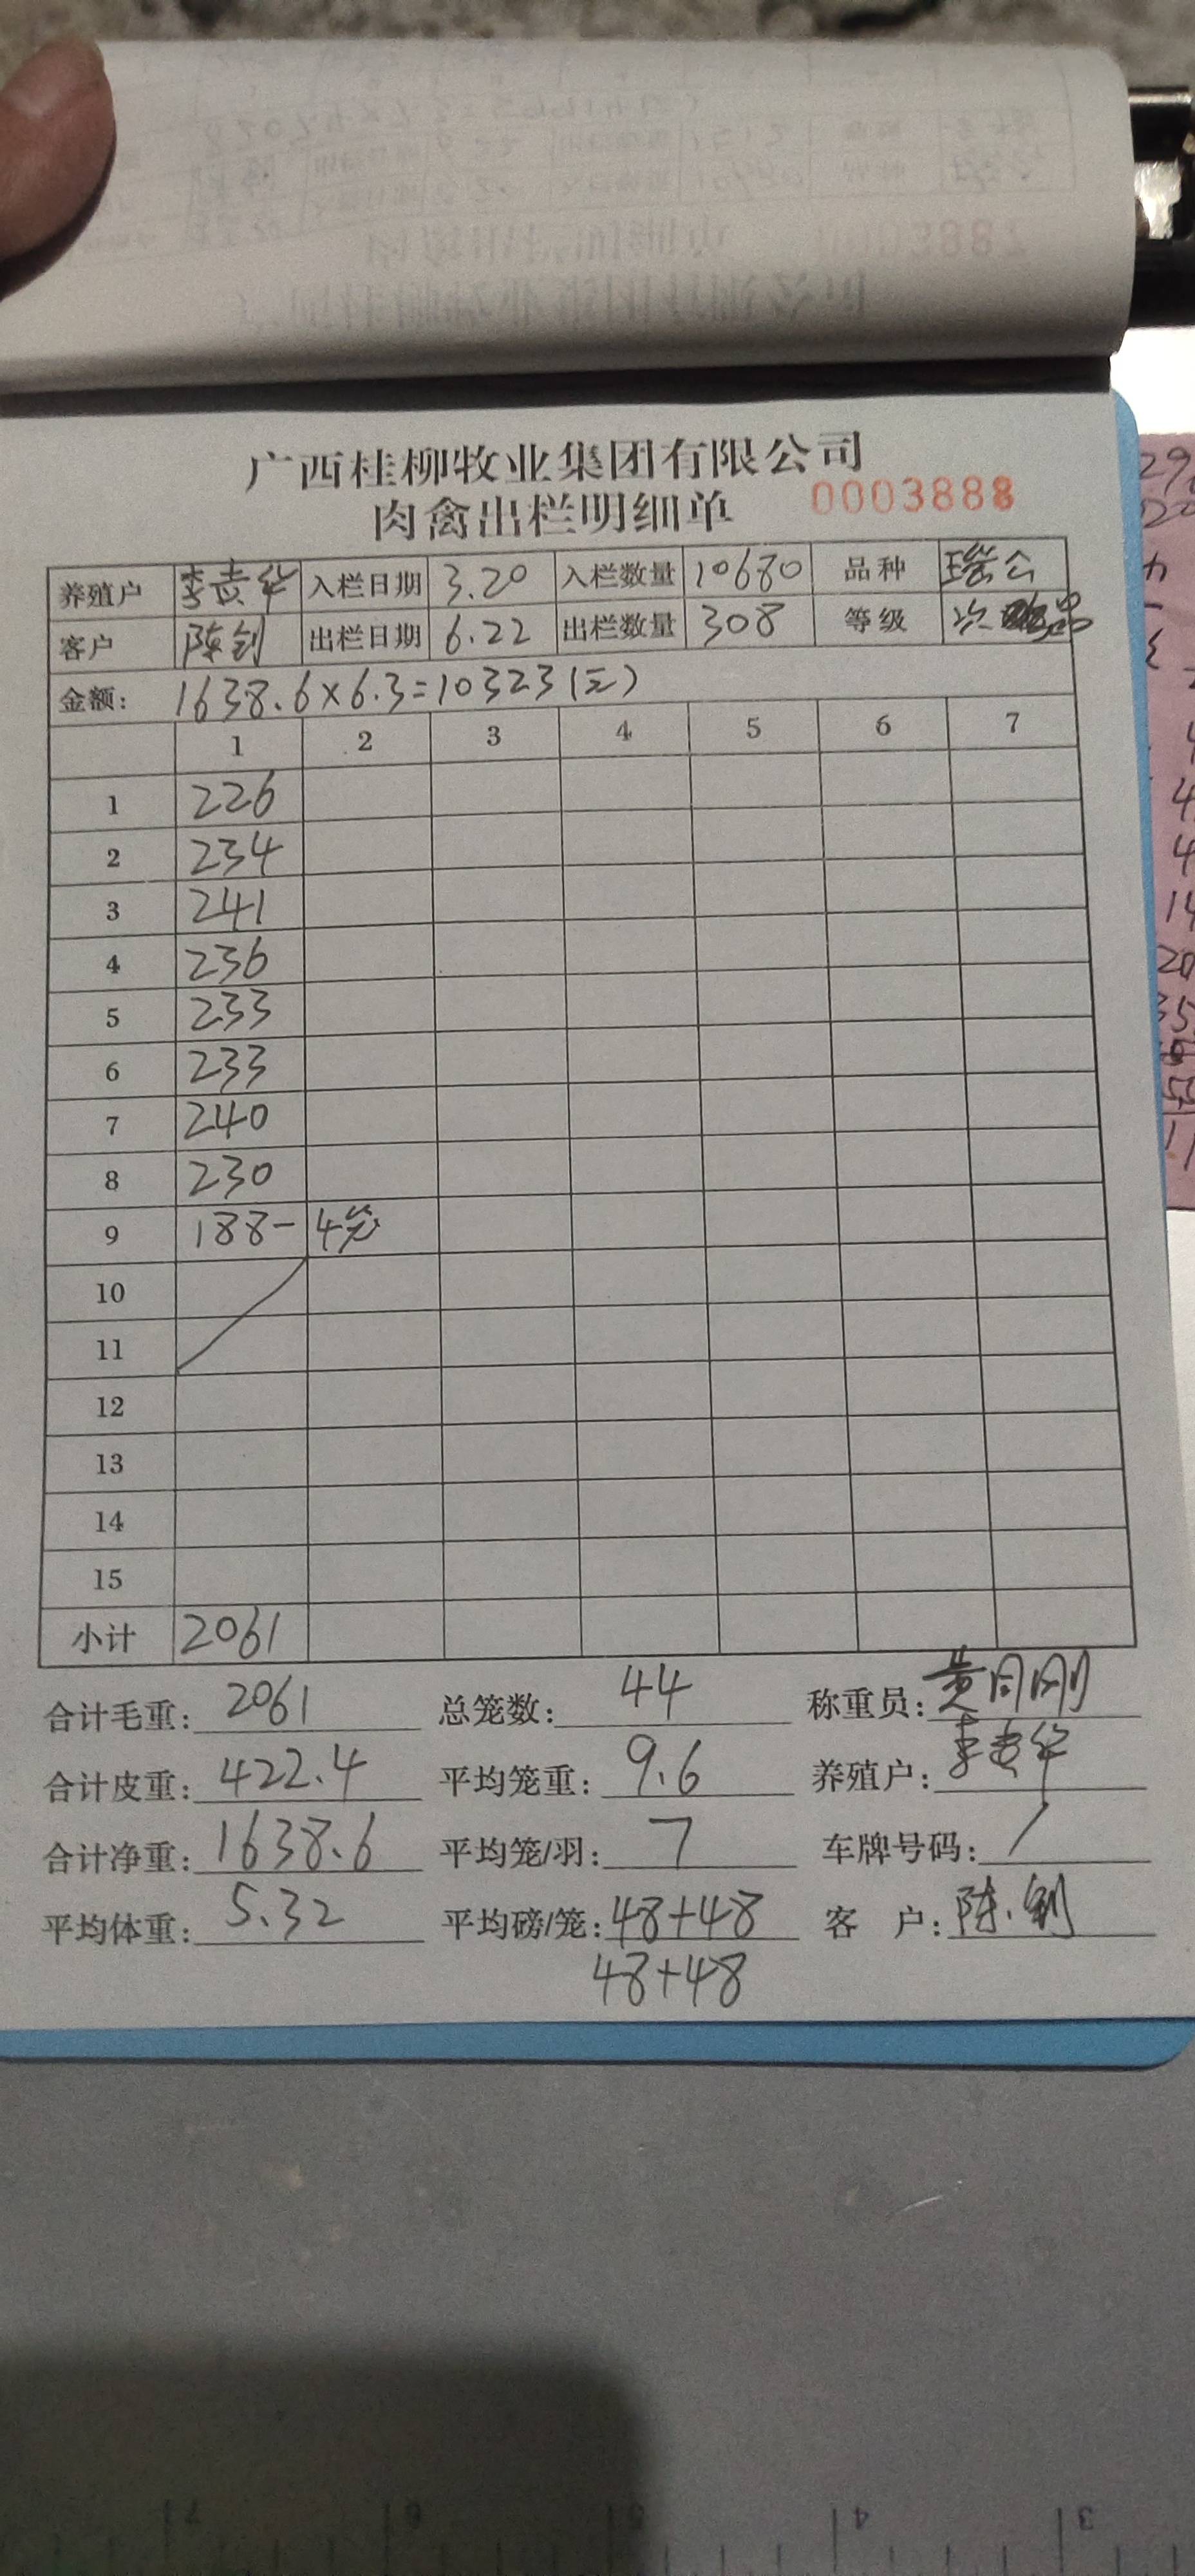 广西桂柳牧业集团有限公司
肉禽出栏明细单 0003888
养殖户 李贵华 入栏日期 3.20 入栏数量 10680 品种 瑶公
客户 陈钊 出栏日期 6.22 出栏数量 308 等级 次 品
金额: 1638.6×6.3=10323(元)
1 2 3 4 5 6 7
1 226
2 234
3 241
4 236
5 233
6 233
7 240
8 230
9 188- 4笼
10
11
12
13
14
15
小计 2061
合计毛重: 2061 总笼数: 44 称重员: 黄同刚
合计皮重: 422.4 平均笼重: 9.6 养殖户: 李贵华
合计净重: 1638.6 平均笼/羽: 7 车牌号码: /
平均体重: 5.32 平均磅/笼: 48+48 客 户: 陈钊
48+48